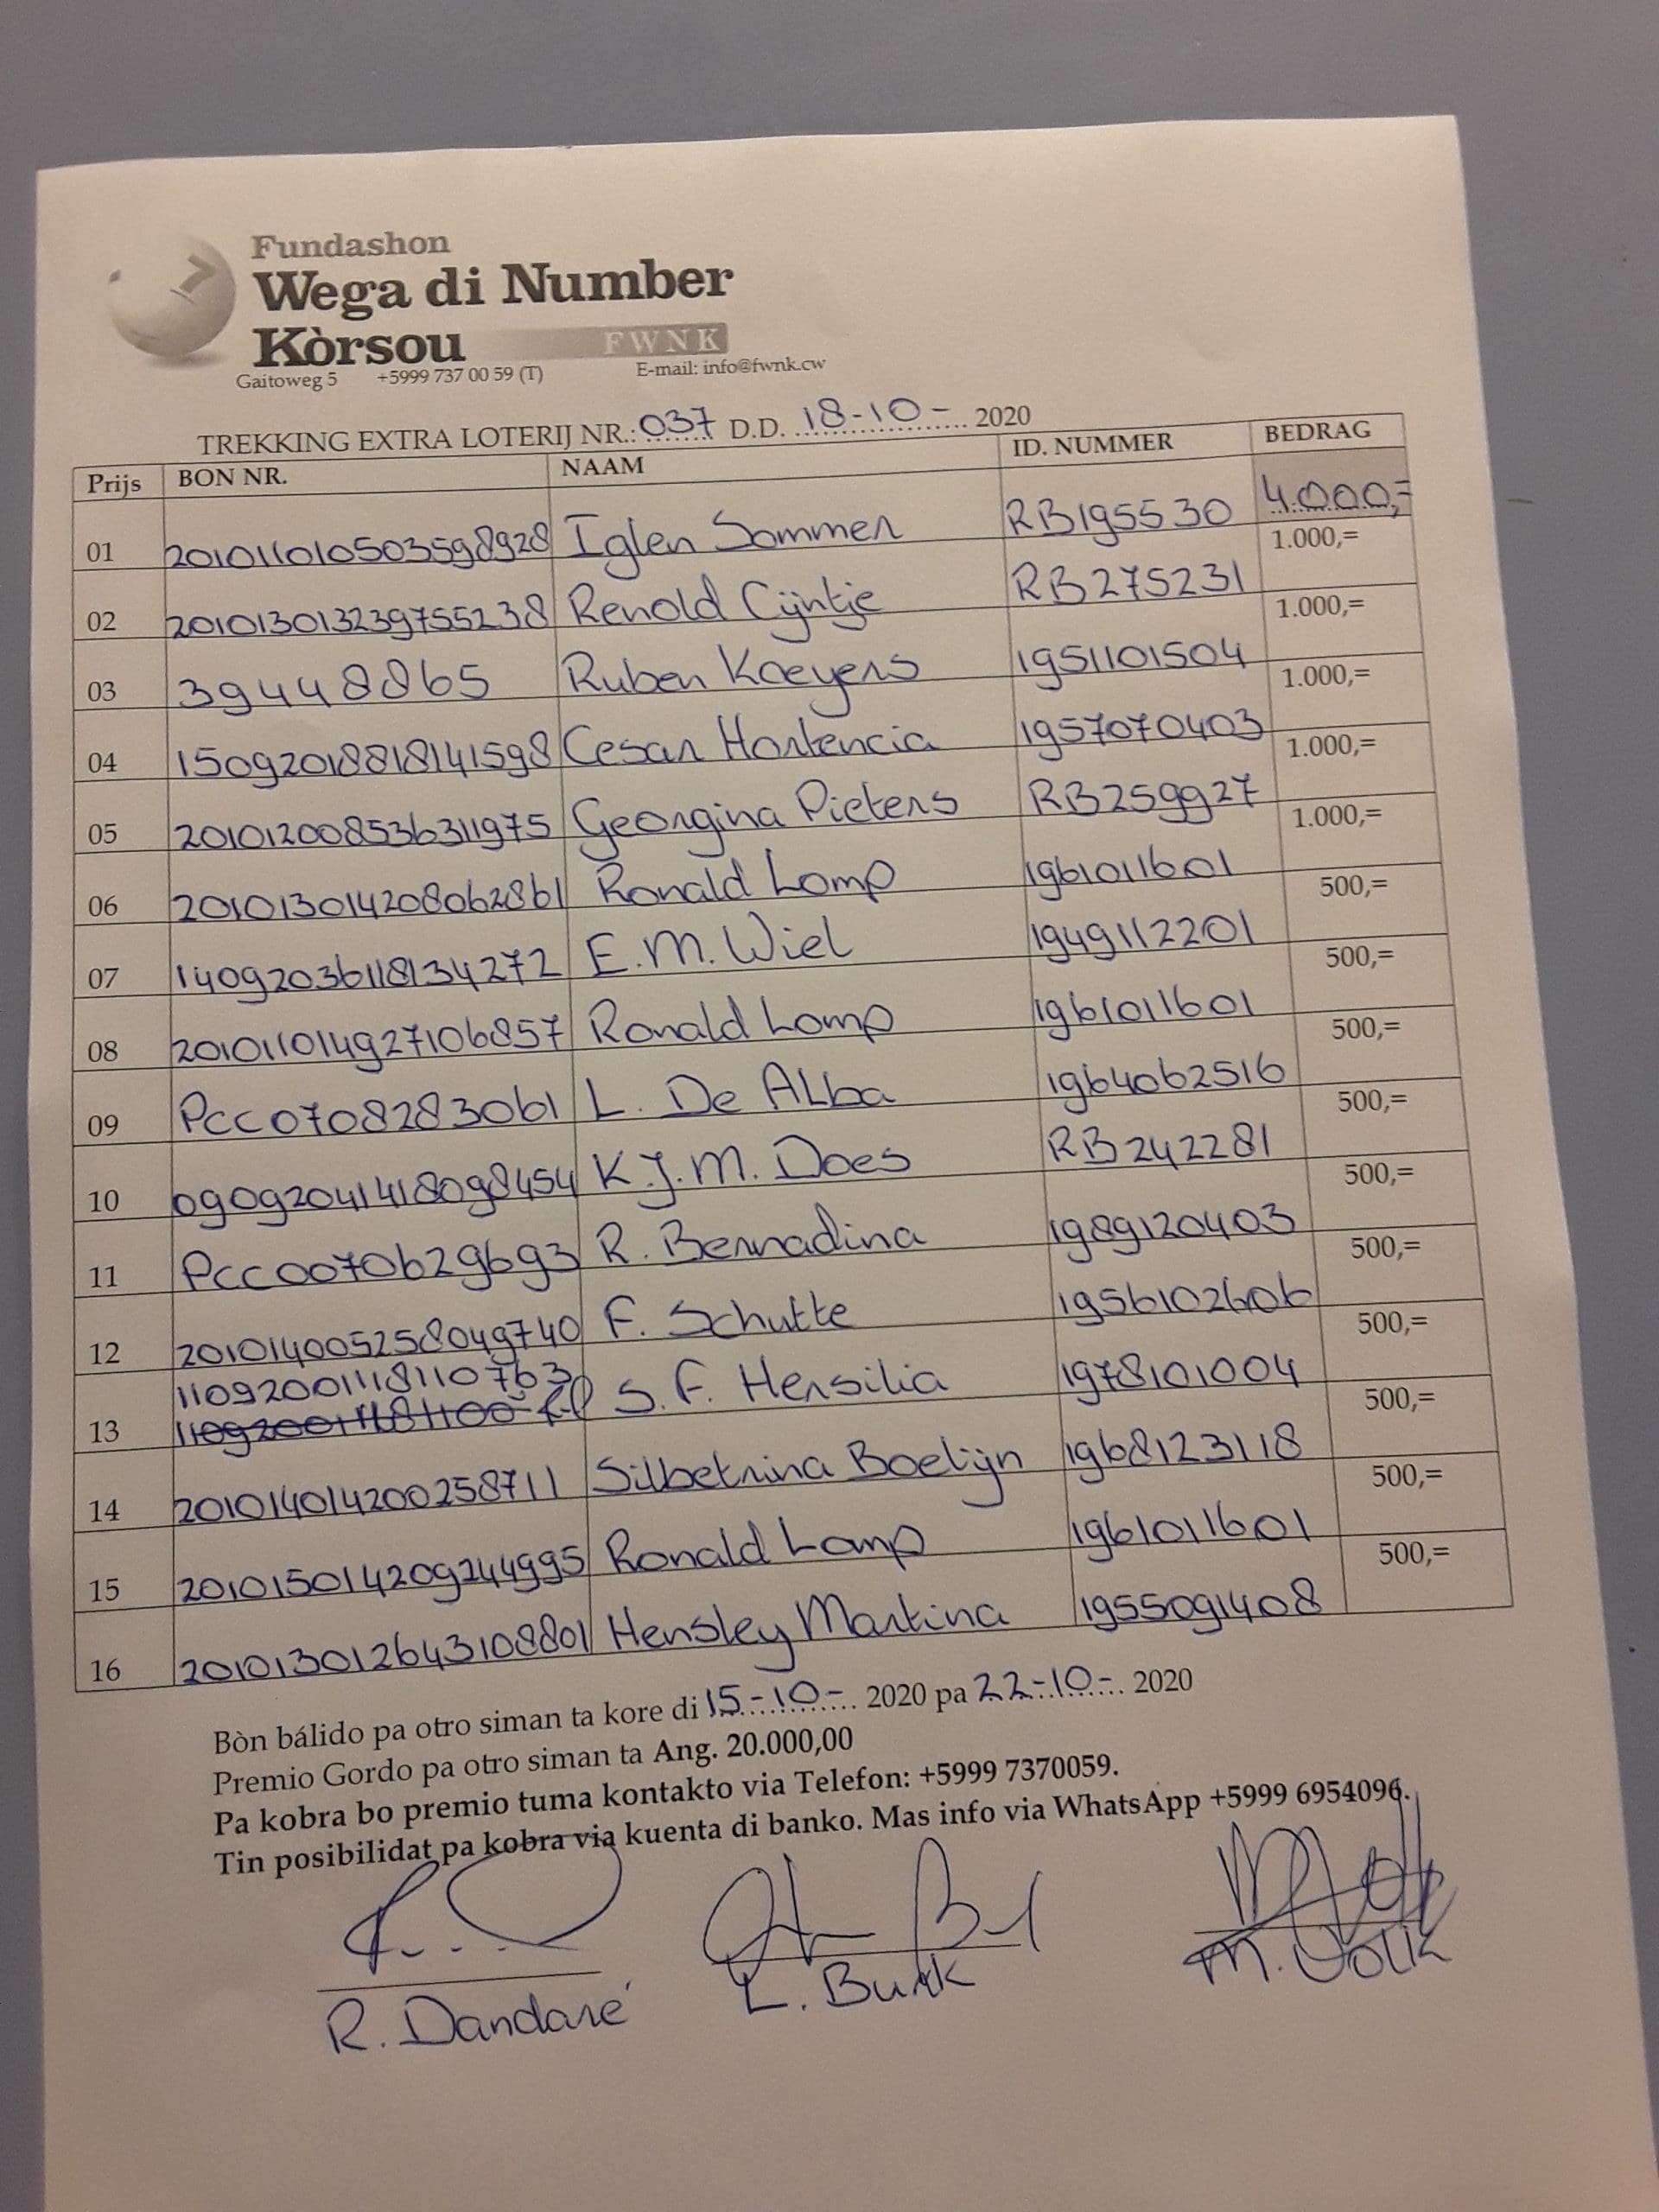 Fundashon
Wega di Number
Kòrsou FWNK
Gaitoweg 5 +5999 737 00 59 (T) E-mail: info@fwnk.cw
TREKKING EXTRA LOTERIJ NR.: 037 D.D. 18-10- 2020
Prijs BON NR. NAAM ID. NUMMER BEDRAG
01 201011010503598928 Iglen Sommer RB195530 4.000,=
02 201013013239755238 Renold Cijntje RB275231 1.000,=
03 39448865 Ruben Koeyers 1951101504 1.000,=
04 15092018818141598 Cesar Hortencia 1957070403 1.000,=
05 201012008536311975 Georgina Pieters RB259927 1.000,=
06 201013014208062861 Ronald Lomp 1961011601 1.000,=
07 14092036118134272 E.M. Wiel 1949112201 500,=
08 201011014927106857 Ronald Lomp 1961011601 500,=
09 PCC0708283061 L. De ALba 1964062516 500,=
10 09092041418098454 K.J.M. Does RB242281 500,=
11 PCC0070629693 R. Bernadina 1989120403 500,=
12 201014005258049740 F. Schutte 1956102606 500,=
13 11092001118110763 S.F. Hersilia 1978101004 500,=
14 201014014200258711 Silbetrina Boelijn 1968123118 500,=
15 201015014209244995 Ronald Lomp 1961011601 500,=
16 201013012643108801 Hensley Martina 1955091408 500,=
500,=
Bòn bálido pa otro siman ta kore di 15-10- 2020 pa 22-10- 2020
Premio Gordo pa otro siman ta Ang. 20.000,00
Pa kobra bo premio tuma kontakto via Telefon: +5999 7370059.
Tin posibilidat pa kobra via kuenta di banko. Mas info via WhatsApp +5999 6954096.
R. Dandaré L. Burk M. Volk